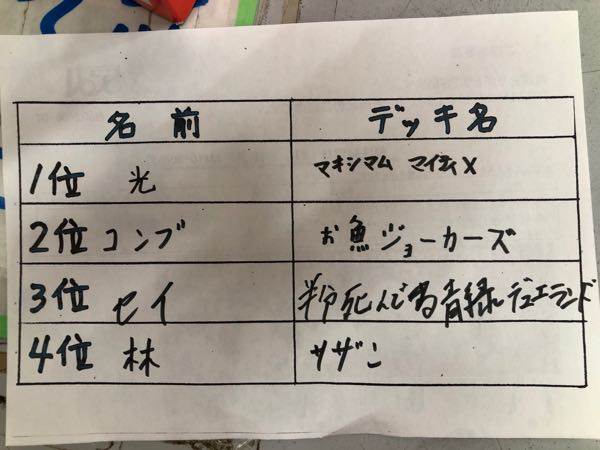 名前 デッキ名
1位 光 マキシマム マイティX
2位 コンブ お魚ジョーカーズ
3位 セイ 半分死んでる青緑デュエランド
4位 林 サザン